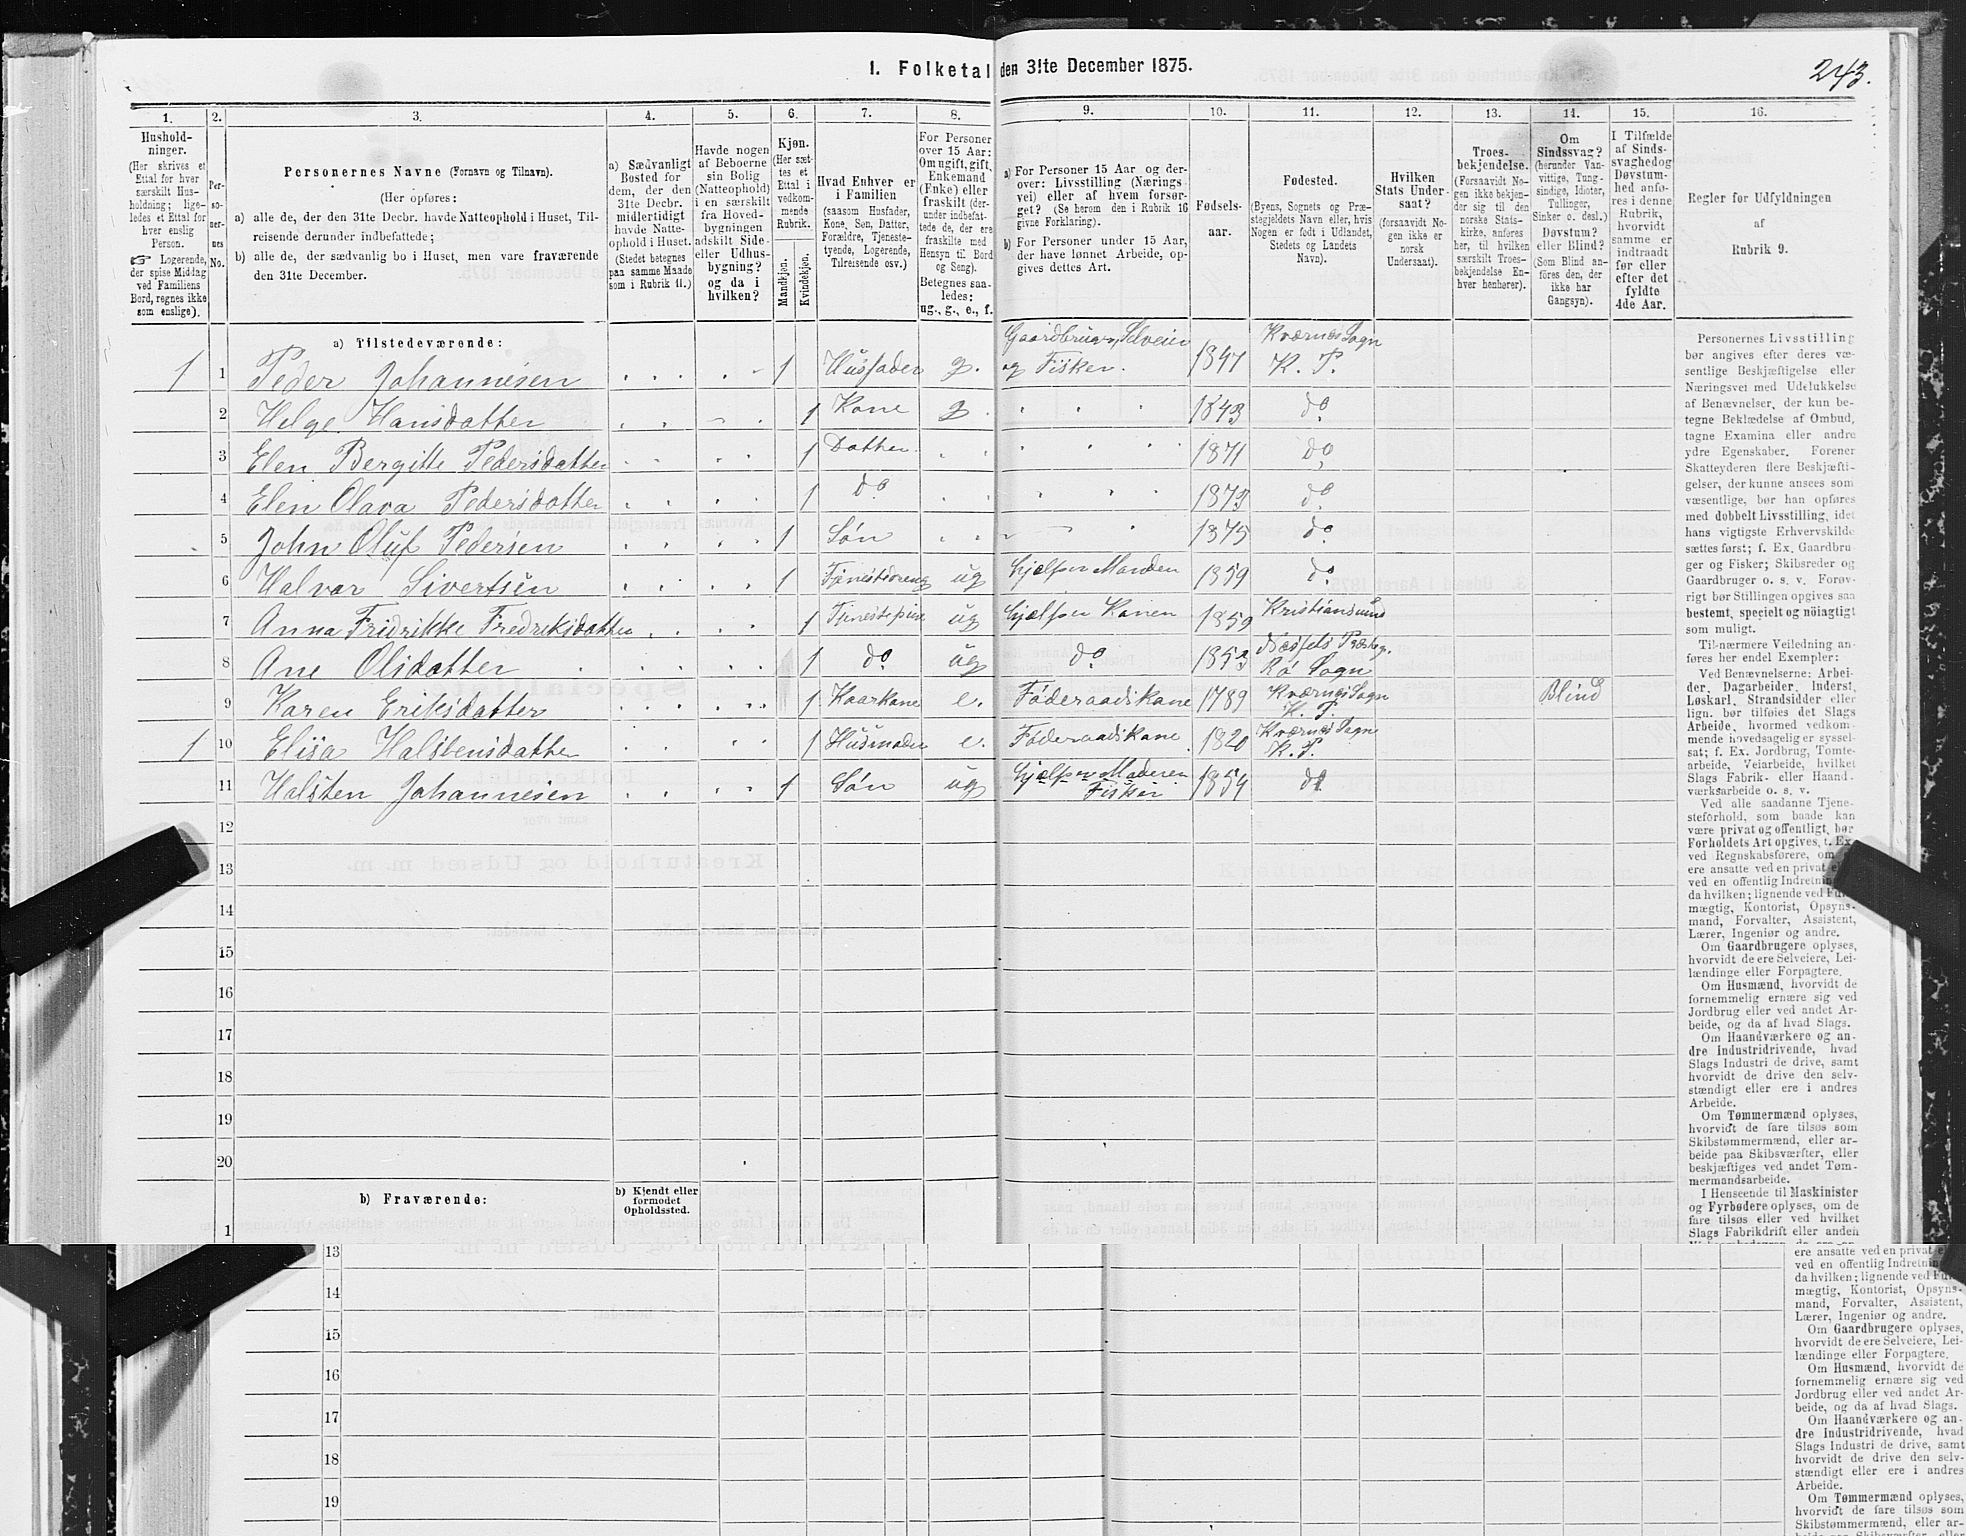 243.
I. Folketal den 31te December 1875.
1. 2. 3. 4. 5. 6. 7. 8. 9. 10. 11. 12. 13. 14. 15. 16.
Hushold-
ninger.
(Her skrives et
Ettal for hver
særskilt Hus-
holdning; lige-
ledes et Ettal for
hver enslig
Person.
☞ Logerende,
der spise Middag
ved Familiens
Bord, regnes ikke
som enslige).
Per-
so-
ner-
nes
No.
Personernes Navne (Fornavn og Tilnavn).
(Her opføres:
a) alle de, der den 31te Decbr. havde Natteophold i Huset, Til-
reisende derunder indbefattede;
b) alle de, der sædvanlig bo i Huset, men vare fraværende
den 31te December.
a) Sædvanligt
Bosted for
dem, der den
31te Decbr.
midlertidigt
havde Natte-
ophold i Huset.
(Stedet betegnes
paa samme Maade
som i Rubrik 11.)
Havde nogen
af Beboerne
sin Bolig
(Natteophold)
i en særskilt
fra Hoved-
bygningen
adskilt Side-
eller Udhus-
bygning?
og da i
hvilken?
Kjøn.
(Her sæt-
tes et
Ettal i
vedkom-
mende
Rubrik.
Mandkjøn.
Kvindekjøn.
Hvad Enhver er
i Familien
(saasom Husfader,
Kone, Søn, Datter,
Forældre, Tjeneste-
tyende, Logerende,
Tilreisende osv.)
For Personer
over 15 Aar:
Om ugift, gift,
Enkemand
(Enke) eller
fraskilt (der-
under indbefat-
tede de, der ere
fraskilte med
Hensyn til Bord
og Seng).
Betegnes saa-
ledes:
ug., g., e., f.
a) For Personer 15 Aar og der-
over: Livsstilling (Nærings-
vei) eller af hvem forsør-
get? (Se herom den i Rubrik 16
givne Forklaring).
b) For Personer under 15 Aar,
der have lønnet Arbeide, op-
gives dettes Art.
Fødsels-
aar.
Fødested.
(Byens, Sognets og Præ-
stegjeldets Navn eller, hvis
Nogen er født i Udlandet,
Stedets og Landets
Navn).
Hvilken
Stats Under-
saat?
(forsaavidt No-
gen ikke er
norsk
Undersaat).
Troes-
bekjendelse.
(Forsaavidt No-
gen ikke bekjen-
der sig til den
norske Stats-
kirke, anføres
her, til hvilken
særskilt Troes-
bekjendelse En-
hver henhører).
Om
Sindssvag?
(herunder Van-
vittige, Tung-
sindige, Idioter,
Tullinger,
Sinker o. desl.)
Døvstum?
eller Blind?
(Som Blind an-
føres den, der
ikke har
Gangsyn).
I Tilfælde
af Sinds-
svaghed og
Døvstum-
hed anfø-
res i denne
Rubrik,
hvorvidt
samme er
indtraadt
før eller
efter det
fyldte
4de Aar.
Regler for Udfyldningen
af
Rubrik 9.
a) Tilstedeværende:
1 1 Peder Johannesen 1 Husfader g. Gaardbruger, Selveier og Fisker. 1847 Kværnes Sogn K. P.
2 Helge Hansdatter 1 Kone g. 1843 do
3 Elen Bergitte Pedersdatter 1 Datter 1871 do
4 Elen Olava Pedersdatter 1 do 1873 do
5 John Oluf Pedersen 1 Søn 1875 do
6 Halvar Sivertsen 1 Tjenestdreng ug hjælper Manden 1859 do
7 Anna Fridrikke Fredriksdatter 1 Tjenestpige ug hjælper Konen 1859 Kristiansund
8 Ane Olsdatter 1 do ug do 1853 Næsfets Præsteg. Rø Sogn
9 Karen Eriksdatter 1 Kaarkone e. Føderaadskone 1789 Kværnes Sogn K. P. Blind
1 10 Elisa Halstensdatter 1 Husmoder e. Føderaadskone 1820 Kværnes Sogn K. P.
11 Halsten Johannesen 1 Søn ug hjælper Moderen Fisker 1854 do
12
13
14
15
16
17
18
19
20
b) Fraværende:
b) Kjendt eller
formodet
Opholdssted.
1
Personernes Livsstilling
bør angives efter deres væ-
sentlige Beskjæftigelse eller
Næringsvei med Udelukkelse
af Benævnelser, der kun be-
tegne Beklædelse af Ombud,
tagne Examina eller andre
ydre Egenskaber. Forener
Skatteyderen flere Beskjæfti-
gelser, der kunne ansees som
væsentlige, bør han opføres
med dobbelt Livsstilling, idet
hans vigtigste Erhvervskilde
sættes først; f. Ex. Gaardbru-
ger og Fisker; Skibsreder og
Gaardbruger o. s. v. Forøv-
rigt bør Stillingen opgives saa
bestemt, specielt og nøiagtigt
som muligt.
Til nærmere Veiledning an-
føres her endel Exempler:
Ved Benævnelserne: Arbei-
der, Dagarbeider, Inderst,
Løskarl, Strandsidder eller
lign. bør tilføies det Slags
Arbeide, hvormed vedkom-
mende hovedsagelig er syssel-
sat; f. Ex. Jordbrug, Tomte-
arbeide, Veiarbeide, hvilket
Slags Fabrik- eller Haand-
værksarbeide o. s. v.
Ved alle saadanne Tjene-
steforhold, som baade kan
være privat og offentligt, bør
Forholdets Art opgives, t. Ex.
ved Regnskabsførere, om
ere ansatte ved en privat
ved en offentlig Indretning
da hvilken; lignende ved Ful-
mægtig, Kontorist, Opsyns-
mand, Forvalter, Assistent,
Lærer, Ingeniør og andre.
Om Gaardbrugere oplyses,
hvorvidt de ere Selveiere, Lei-
lændinge eller Forpagtere.
Om Husmænd, hvorvidt de
fornemmelig ernære sig ved
Jordbrug eller ved andet Ar-
beide, og da af hvad Slags.
Om Haandværkere og an-
dre Industridrivende, hvad
Slags Industri de drive, samt
hvorvidt de drive den selv-
stændigt eller ere i andres
Arbeide.
Om Tømmermænd oplyses,
hvorvidt de fare tilsøs som
Skibstømmermænd, eller ar-
beide paa Skibsværfter, eller
beskjæftiges ved andet Tøm-
mermandsarbeide.
I Henseende til Maskinister
og Fyrbødere oplyses, om de
fare tilsøs eller ved hvilket
Slags Fabrikdrift eller anden
13
14
15
16
17
18
19
ere ansatte ved en privat
ved en offentlig Indretning
da hvilken; lignende ved Ful-
mægtig, Kontorist, Opsyns-
mand, Forvalter, Assistent,
Lærer, Ingeniør og andre.
Om Gaardbrugere oplyses,
hvorvidt de ere Selveiere, Lei-
lændinge eller Forpagtere.
Om Husmænd, hvorvidt de
fornemmelig ernære sig ved
Jordbrug eller ved andet Ar-
beide, og da af hvad Slags.
Om Haandværkere og an-
dre Industridrivende, hvad
Slags Industri de drive, samt
hvorvidt de drive den selv-
stændigt eller ere i andres
Arbeide.
Om Tømmermænd oplyses,
hvorvidt de fare tilsøs som
Skibstømmermænd, eller ar-